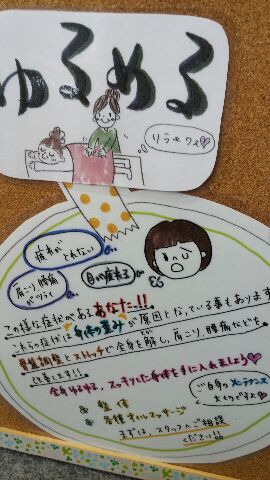 ゆるめる
リラックス♡
疲れが
とれない
肩こり 腰痛
がツライ
目が疲れる
この様な症状がある あなた!!
これらの症状は 身体の歪み が原因となっている事もあります
骨盤調整とストレッチで全身を解し、肩こり、腰痛などを
改善します!!
全身ゆるゆる、スッキリした身体を手に入れましょう♡
整体
各種オイルマッサージ
まずは、スタッフへご相談
ください!!
ご自身のメンテナンス
大切ですよ♡